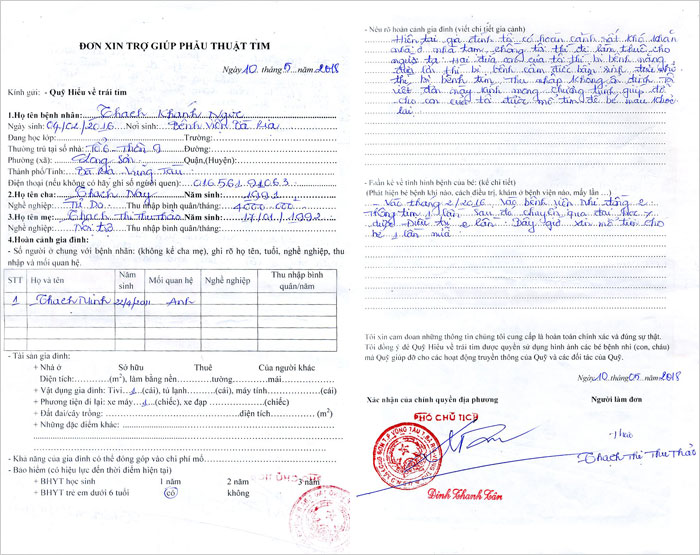 ĐƠN XIN TRỢ GIÚP PHẪU THUẬT TIM
Ngày 10 tháng 5 năm 2018
Kính gửi: - Quỹ Hiểu về trái tim
1.Họ tên bệnh nhân: Thạch Khánh Ngọc
Ngày sinh: 04/02/2016 Nơi sinh: Bệnh Viện Bà Rịa
Đang học lớp: Trường:
Thường trú tại số nhà: Tổ 6 - Thôn 9 Đường:
Phường (xã): Long Sơn Quận,(Huyện):
Thành phố/Tỉnh: Bà Rịa Vũng Tàu
Điện thoại (nếu không có hãy ghi số người quen): 01656191063
2.Họ tên cha: Thạch Này Năm sinh: 1991
Nghề nghiệp: Tự Do Thu nhập bình quân/tháng: 4000.000
3.Họ tên mẹ: Thạch Thị Thu Thảo Năm sinh: 17/01/1992
Nghề nghiệp: Nội trợ Thu nhập bình quân/tháng:
4.Hoàn cảnh gia đình:
- Số người ở chung với bệnh nhân: (không kể cha mẹ), ghi rõ họ tên, tuổi, nghề nghiệp, thu
nhập và mối quan hệ.
STT Họ và tên Năm sinh Mối quan hệ Nghề nghiệp Thu nhập bình quân/năm
1 Thạch Minh 22/4/2011 Anh
- Tài sản gia đình:
+ Nhà ở Sở hữu Thuê Của người khác
Diện tích: (m2), làm bằng nền tường mái
+ Vật dụng gia đình: Tivi 1 (cái), tủ lạnh (cái), máy tính (cái)
+ Phương tiện đi lại: xe máy 1 (chiếc), xe đạp (chiếc)
+ Đất đai/cây trồng: diện tích (m2)
+ Những đặc điểm khác:
- Khả năng của gia đình có thể đóng góp vào chi phí mổ
- Bảo hiểm (có hiệu lực đến thời điểm hiện tại)
+ BHYT học sinh 1 năm 2 năm 3 năm
+ BHYT trẻ em dưới 6 tuổi có không
- Nêu rõ hoàn cảnh gia đình (viết chi tiết gia cảnh)
Hiện tại gia đình tôi có hoàn cảnh rất khó khăn
nhà ở nhà tạm, chồng tôi thì đi làm thuê cho
người ta. Hai đứa con của tôi thì bị bệnh nặng
đứa lớn thì bị bệnh câm điếc bẩm sinh, đứa nhỏ
thì bị bệnh tim. Thu nhập không ổn định. Tôi
viết đơn này kính mong chương trình giúp đỡ
cho con của tôi được mổ tim để bé mau khỏe
lại.
- Phần kể về tình hình bệnh của bé: (kể chi tiết)
(Phát hiện bệnh khi nào, cách điều trị, khám ở bệnh viện nào, mấy lần ...)
- Vào tháng 2/2016 Vào bệnh viện Nhi đồng 2
thông tim 1 lần sau đó chuyển qua đại học y
dược Điều trị 2 lần. Bây giờ xin mổ tim cho
bé 1 lần nữa
Tôi xin cam đoan những thông tin chúng tôi cung cấp là hoàn toàn chính xác và đúng sự thật.
Tôi đồng ý để Quỹ Hiểu về trái tim được quyền sử dụng hình ảnh các bé bệnh nhi (con, cháu)
mà Quỹ giúp đỡ cho các hoạt động truyền thông của Quỹ và các đối tác của Quỹ.
Ngày 10 tháng 05 năm 2018
Xác nhận của chính quyền địa phương Người làm đơn
PHÓ CHỦ TỊCH
Thảo
Thạch Thị Thu Thảo
Đinh Thanh Tân